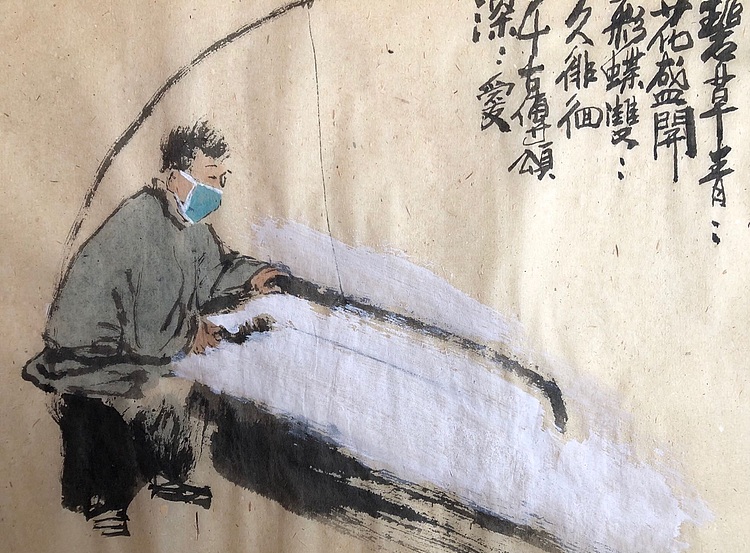 碧草青⺀
花盛開
彩蝶雙⺀
久徘徊
千古傳頌
深⺀愛